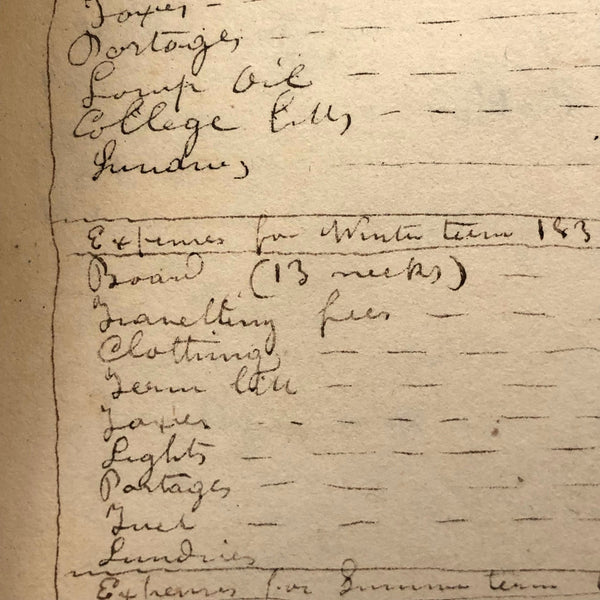 Taxes
Postages
Lamp Oil
College bills
Sundries
Expenses for Winter term 183
Board (13 weeks)
Travelling fees
Clothing
Term bill
Taxes
Lights
Postages
Fuel
Sundries
Expenses for Summer term